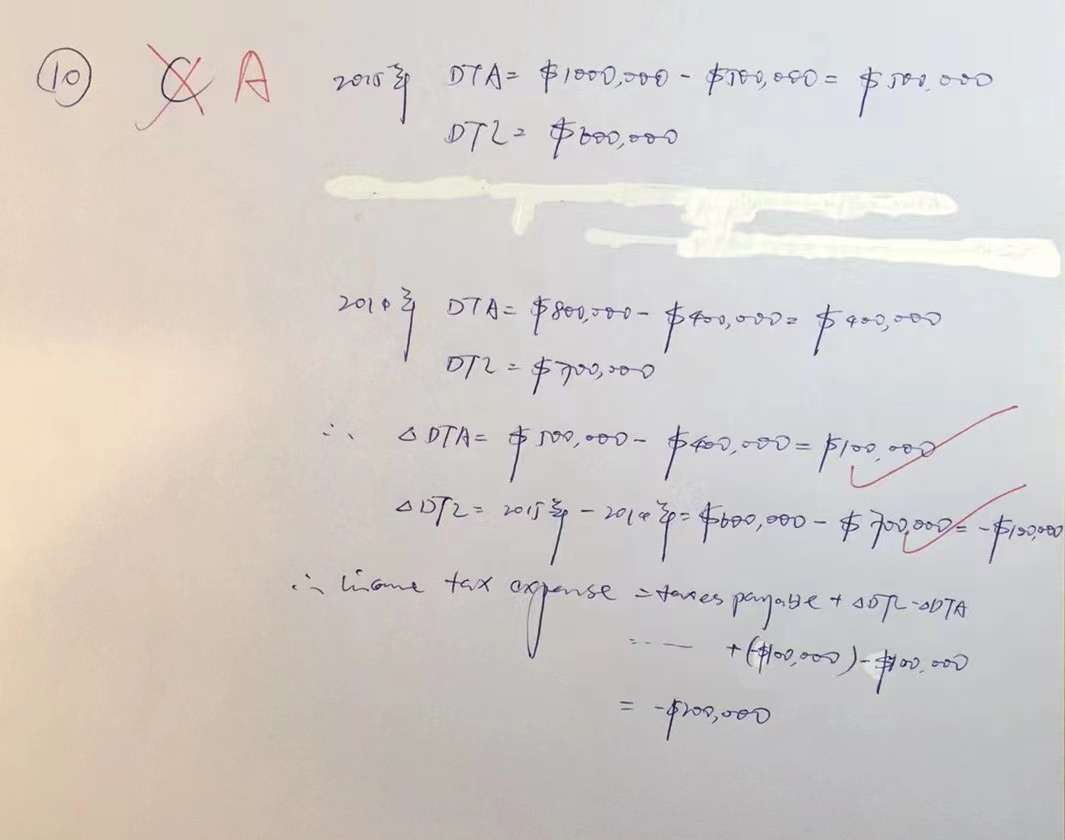 ⑩ C A 2015年 DTA = $1000,000 - $500,000 = $500,000
DTL = $600,000
2014年 DTA = $800,000 - $400,000 = $400,000
DTL = $700,000
∴ △DTA = $500,000 - $400,000 = $100,000
△DTL = 2015年 - 2014年 = $600,000 - $700,000 = -$100,000
∴ Income tax expense = taxes payable + △DTL - △DTA
= ...... + (-$100,000) - $100,000
= -$200,000